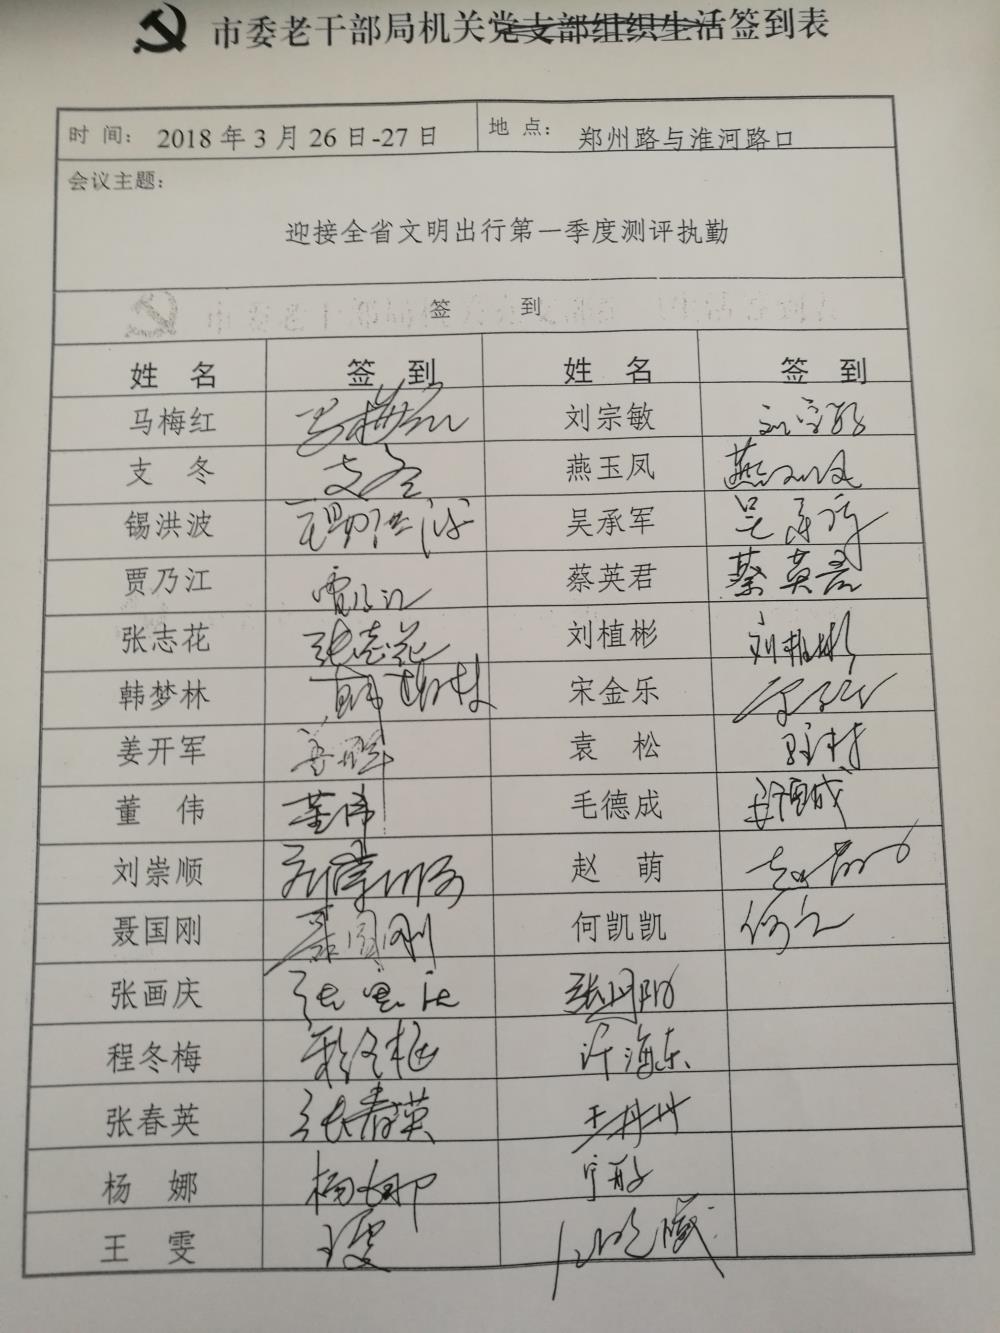 市委老干部局机关党支部组织生活签到表
时 间： 2018年3月26日-27日 地 点： 郑州路与淮河路口
会议主题：
迎接全省文明出行第一季度测评执勤
签 到
姓 名 签 到 姓 名 签 到
马梅红 马梅红 刘宗敏 刘宗敏
支 冬 支冬 燕玉凤 燕玉凤
锡洪波 锡洪波 吴承军 吴承军
贾乃江 贾乃江 蔡英君 蔡英君
张志花 张志花 刘植彬 刘植彬
韩梦林 韩梦林 宋金乐 宋金乐
姜开军 姜开军 袁 松 袁松
董 伟 董伟 毛德成 毛德成
刘崇顺 刘崇顺 赵 萌 赵萌
聂国刚 聂国刚 何凯凯 何凯
张画庆 张画庆
程冬梅 程冬梅 许海东
张春英 张春英 王丹丹
杨 娜 杨娜
王 雯 王雯